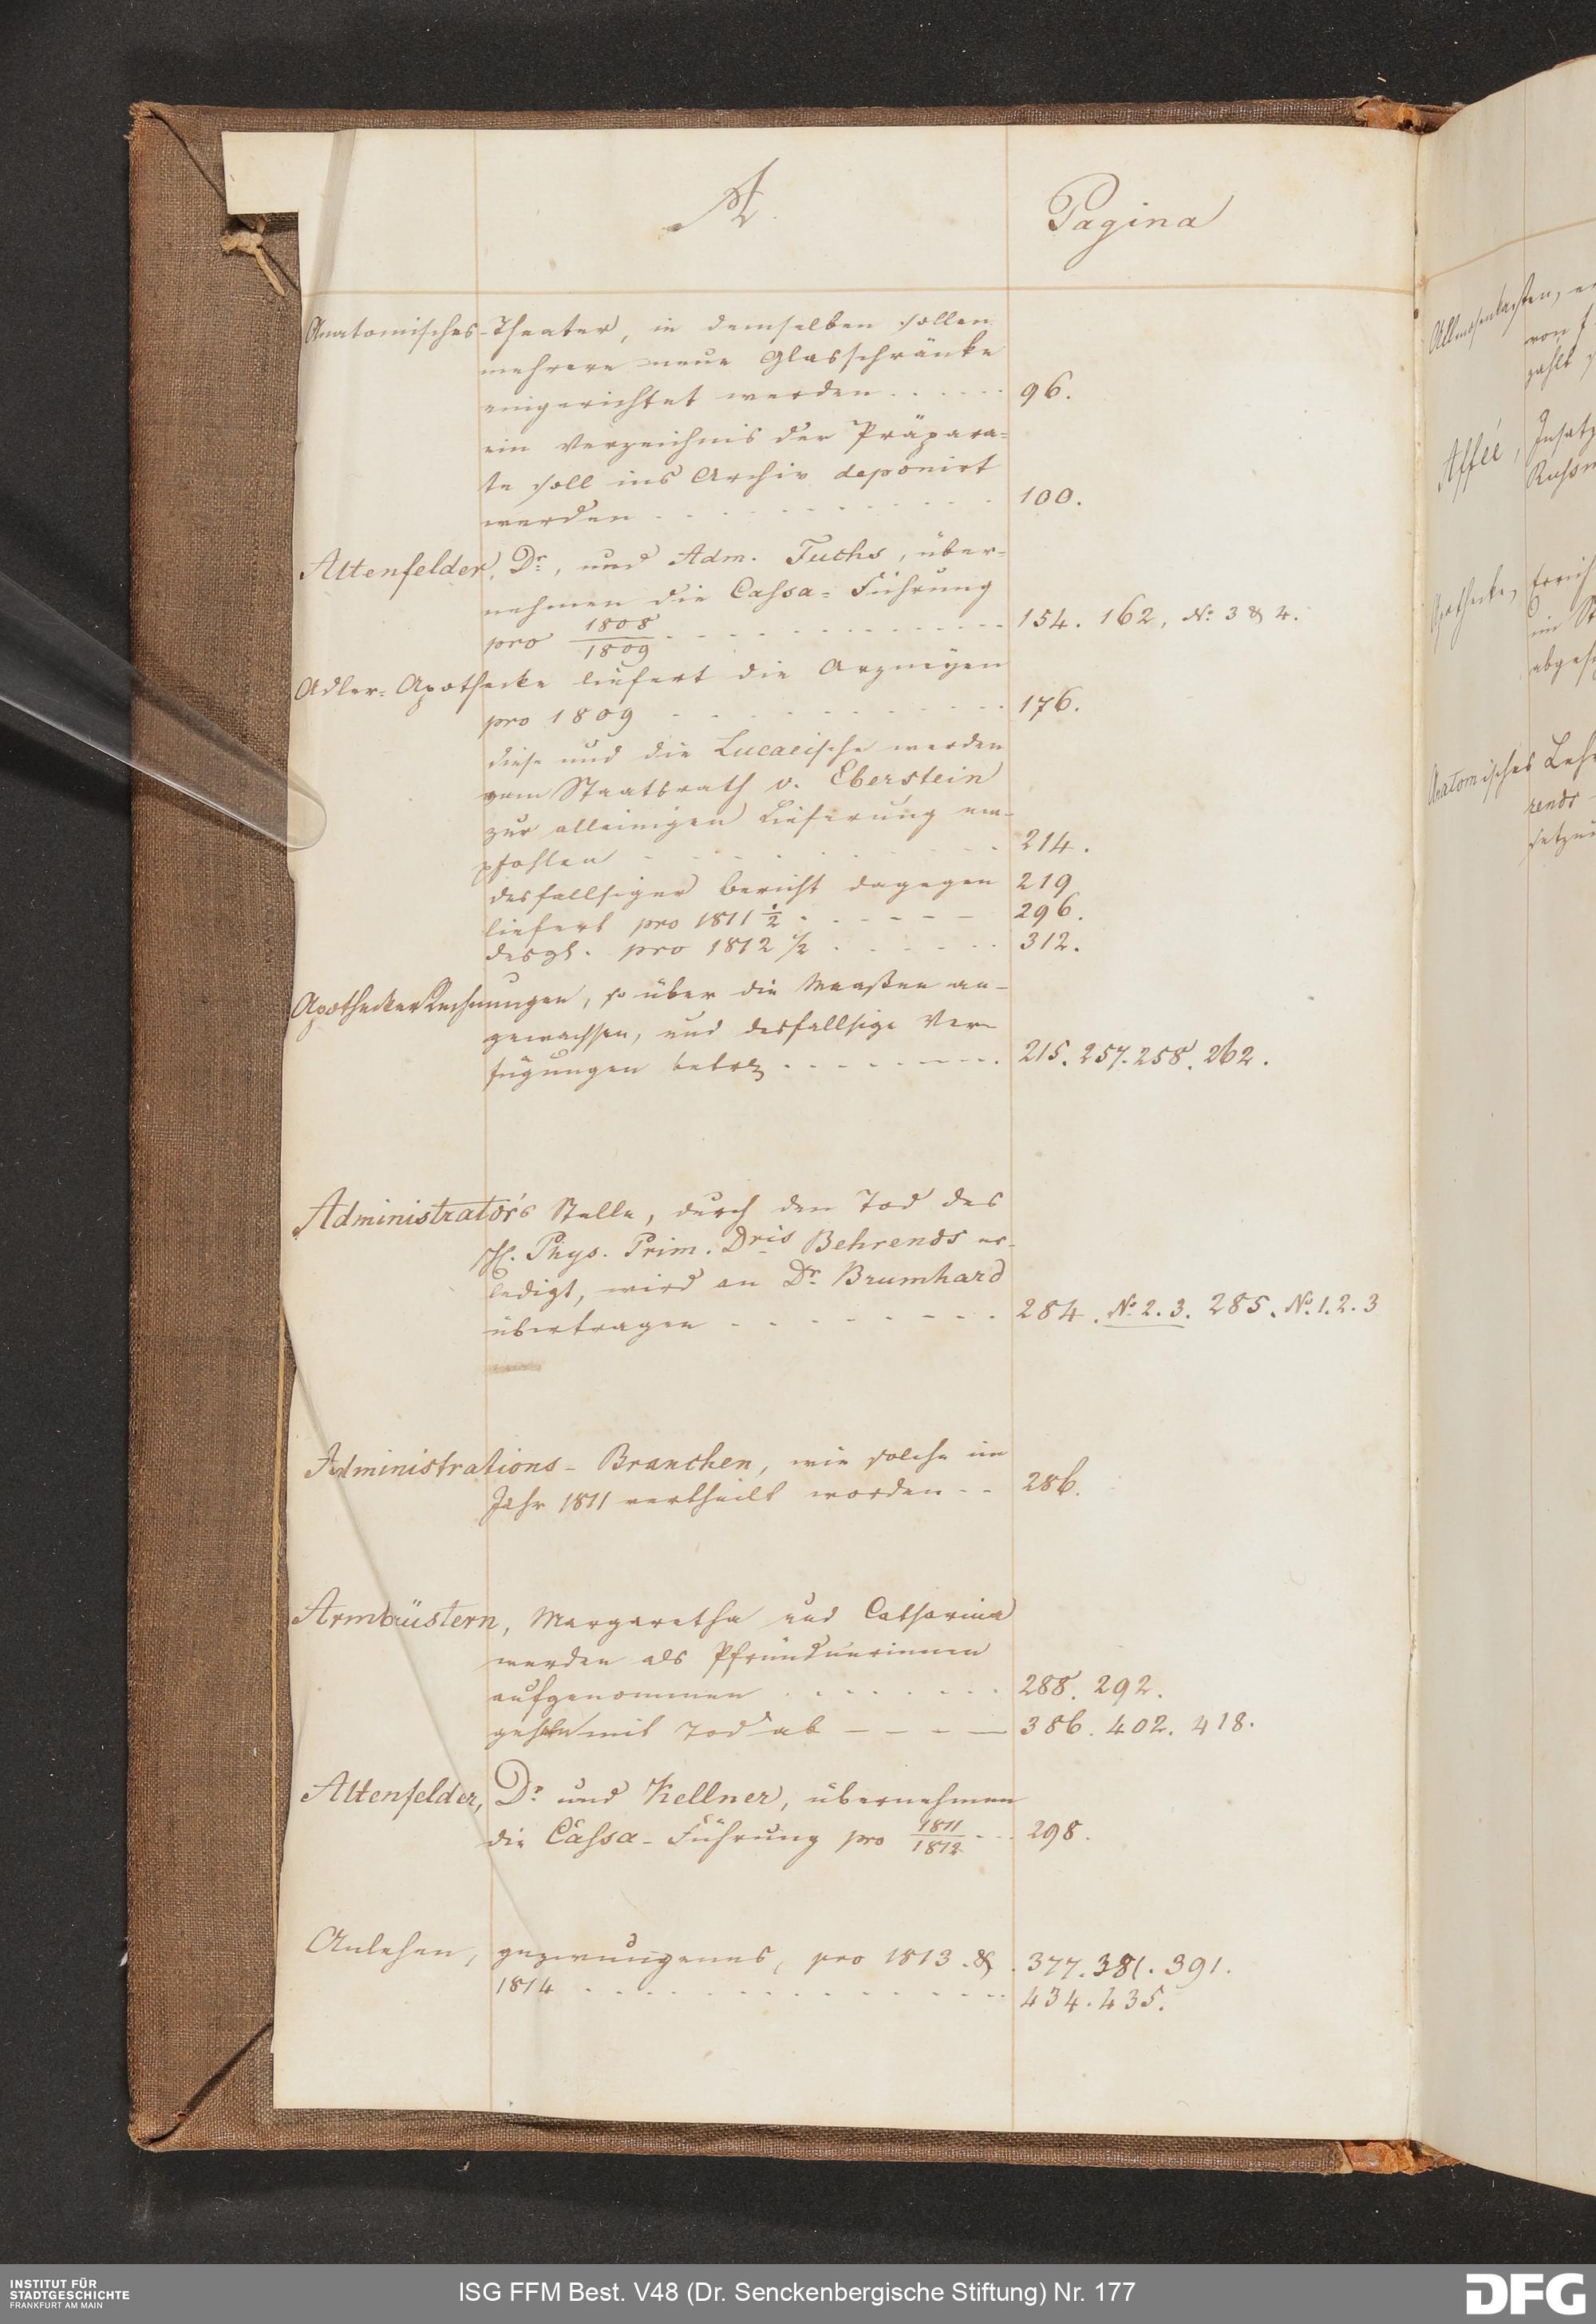 A.
Pagina
Anatomisches-Theater, in demselben sollen
mehrere neue Glasschränke
eingerichtet werden . . . . . 96.
ein Verzeichnis der Präpara=
te soll ins Archiv deponirt
werden . . . . . . . . . . 100.
Attenfelder, Dr., und Adm. Fuchs, über=
nehmen die Cassa=Führung
pro 1808/1809 . . . . . . . . . 154. 162, No. 3 & 4.
Adler=Apothecke liefert die Arzneyen
pro 1809 . . . . . . . . . . 176.
diese und die Lucaeische werden
vom Staatsrath v. Eberstein
zur alleinigen Lieferung em-
pfohlen . . . . . . . . . . 214.
desfallsiger Bericht dagegen 219
liefert pro 1811 1/2 . . . . . . 296.
desgl. pro 1812 1/2 . . . . . . 312.
Apothecker Rechnungen, so über die Maaßen an-
gewachsen, und desfallsige Ver-
fügungen betr. . . . . . . . . 215. 257. 258. 262.
Administrator's Stelle, durch den Tod des
H. Phys. Prim. Dris Behrends er-
ledigt, wird an Dr. Brumhard
übertragen . . . . . . . . . 284. No. 2. 3. 285. No. 1. 2. 3
Administrations-Branchen, wie solche im
Jahr 1811 vertheilt worden . . 286.
Armbrüstern, Margaretha und Catharina
werden als Pfründnerinnen
aufgenommen . . . . . . . 288. 292.
gehen mit Tod ab — — — — 386. 402. 418.
Attenfelder, Dr. und Kellner, übernehmen
die Cassa-Führung pro 1811/1812 . . . 298.
Anlehen, gezwungenes, pro 1813 & . 377. 381. 391.
1814 . . . . . . . . . . . . 434. 435.
Allmosenkasten,
von
zahlt
Affée, Insatz
Apothecke,
im
Anatomisches
rends
INSTITUT FÜR
STADTGESCHICHTE
FRANKFURT AM MAIN
ISG FFM Best. V48 (Dr. Senckenbergische Stiftung) Nr. 177
DFG